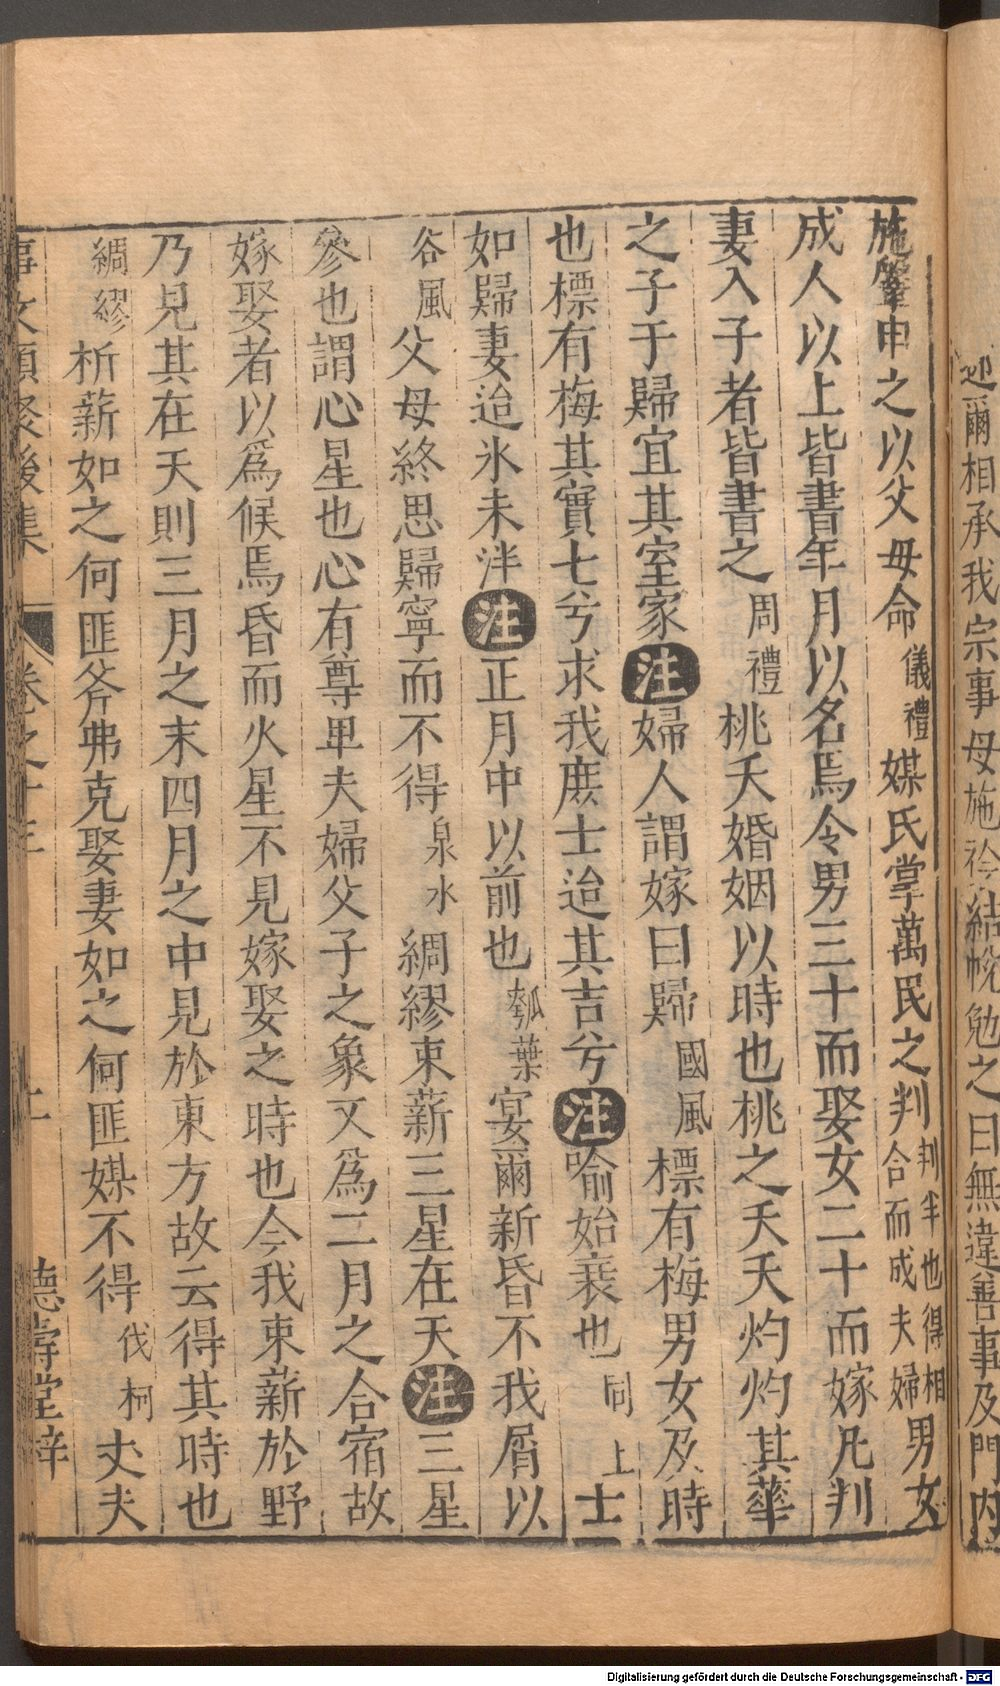 迎爾相承我宗事母施衿結帨勉之曰無違善事及門內
施鞶申之以父母命儀禮媒氏掌萬民之判判半也得相合而成夫婦男女
成人以上皆書年月以名焉令男三十而娶女二十而嫁凡判
妻入子者皆書之周禮桃夭婚姻以時也桃之夭夭灼灼其華
之子于歸宜其室家注婦人謂嫁曰歸國風標有梅男女及時
也標有梅其實七兮求我庶士迨其吉兮注喻始衰也同上士
如歸妻迨氷未泮注正月中以前也瓠葉宴爾新昏不我屑以
谷風父母終思歸寧而不得泉水綢繆束薪三星在天注三星
參也謂心星也心有尊卑夫婦父子之象又爲二月之合宿故
嫁娶者以爲候焉昏而火星不見嫁娶之時也今我束薪於野
乃見其在天則三月之末四月之中見於東方故云得其時也
綢繆析薪如之何匪斧弗克娶妻如之何匪媒不得伐柯丈夫
事文類聚後集 卷之十三 上 德壽堂梓
Digitalisierung gefördert durch die Deutsche Forschungsgemeinschaft - DFG